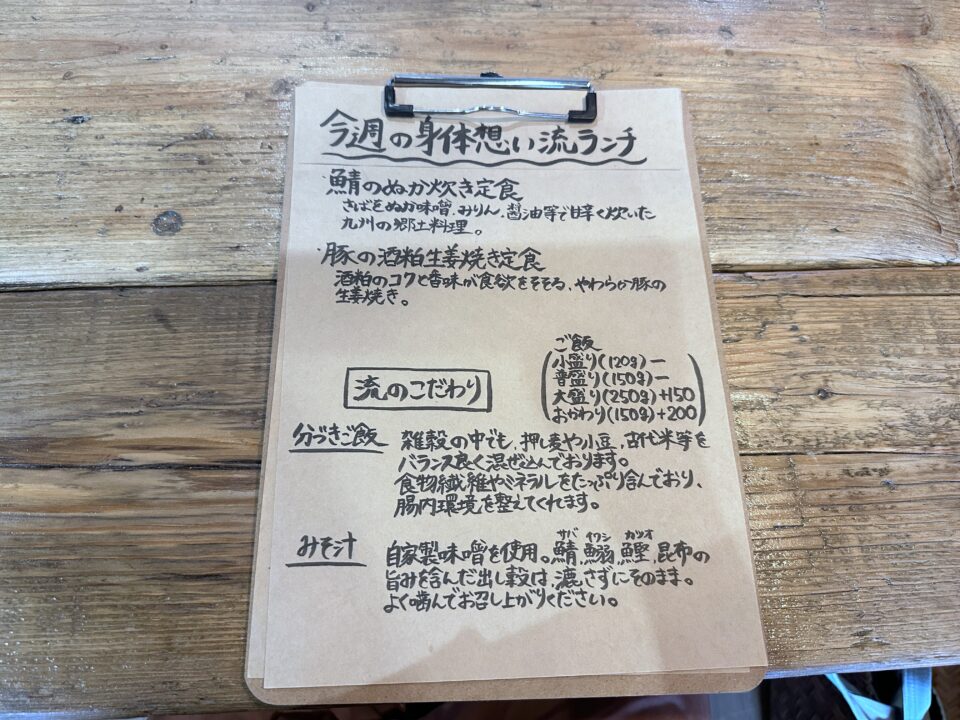 今週の身体想い流ランチ
・鯖のぬか炊き定食
さばをぬか味噌、みりん、醤油等で甘辛く炊いた
九州の郷土料理。
・豚の酒粕生姜焼き定食
酒粕のコクと香味が食欲をそそる、やわらか豚の
生姜焼き。
ご飯
小盛り(120g)ー
普盛り(150g)ー
大盛り(250g)+150
おかわり(150g)+200
流のこだわり
分づきご飯
雑穀の中でも、押し麦や小豆、古代米等を
バランス良く混ぜ込んでおります。
食物繊維やミネラルをたっぷり含んでおり、
腸内環境を整えてくれます。
みそ汁
サバ イワシ カツオ
自家製味噌を使用。鯖、鰯、鰹、昆布の
旨みを含んだ出し穀は、漉さずにそのまま。
よく噛んでお召し上がりください。